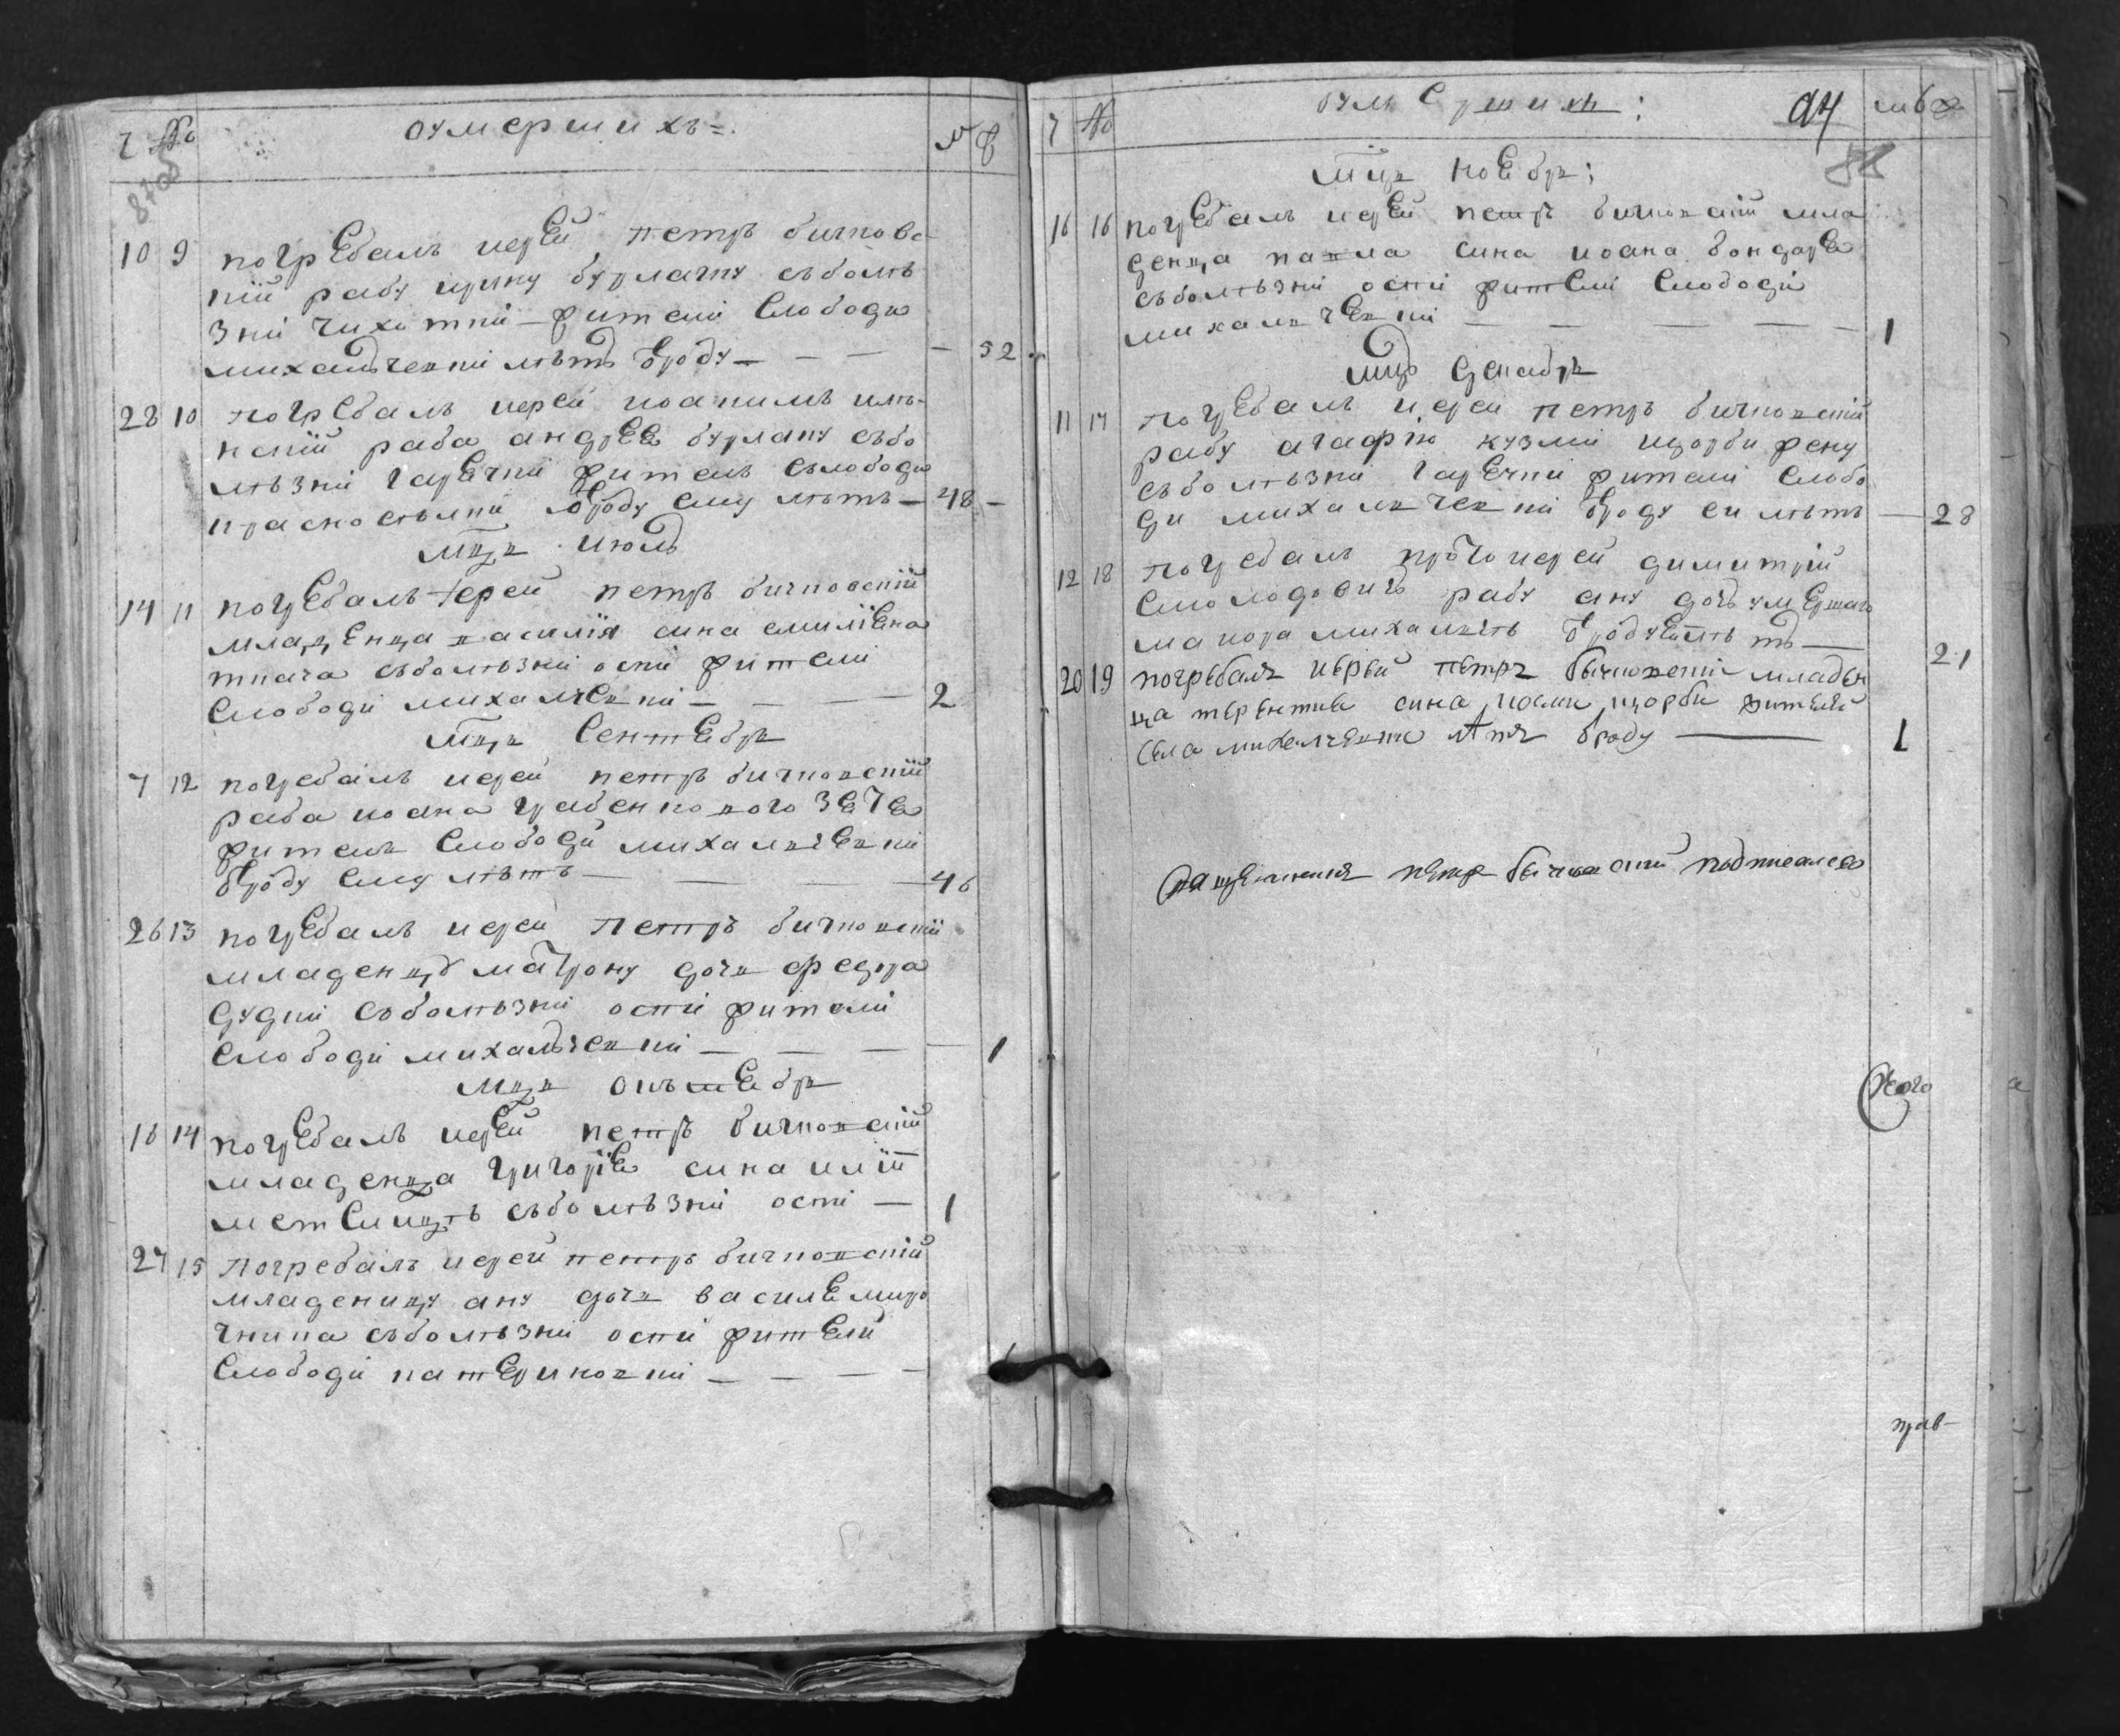 Ч № оумершихъ =. м ж
10 9 погребалъ иерей петръ бичковс
кій рабу ирину бурлачку съболѣ
зни чихотки жителки слободи
михальчевки лѣтъ Ѿроду — 52
28 10 погребалъ иерей иоакимъ илѣ
нскій раба андрея бурлаку събо
лѣзни гарячки жителъ съслободи
красноселки Ѿроду ему лѣтъ — 48
мцъ июль
14 11 погребалъ іерей петръ бичковскій
младенца василія сина емилiяна
ткача съболѣзни оспи жители
слободи михалчевки — 2
мця сентебря
7 12 погребалъ иерей петръ бичковскій
раба иоана грабенкового зятя
житель слободи михальчевки
Ѿроду ему лѣтъ — 46
26 13 погребалъ иерей петръ бичковскій
младенцу матрону дочь федора
дудки съболѣзни оспи жители
слободи михальчевки — 1
мця октебря
16 14 погребалъ иерей петръ бичковскій
младенца григорія сина иліи
съболѣзни оспи — 1
27 15 погребалъ иерей петръ бичковскій
младеницу ану дочь василя миро
чника съболѣзни оспи жители
слободи катериновки —
Ч № оумершихъ : м
мця ноебря:
16 16 погребалъ иерей петръ бичковскій мла
денца павла сина иоана бондаря
съболѣзни оспи жители слободи
михальчевки — 1
мцъ декабря
11 17 погребалъ иерей петръ бичковскій
рабу агафію кузми щорби жену
съболѣзни гарячки жители слобо
ди михальчевки Ѿроду ей лѣтъ — 28
12 18 погребалъ протоиерей димитрій
смолодовичъ рабу ану дочь умершаго
маиора Ѿроду ей лѣтъ — 21
20 19 погребалъ иерей петръ бычковскій младен
ца терентия сина щорби жителя
села михалчевки лѣтъ Ѿроду — 1
священникъ петръ бычковский подписался